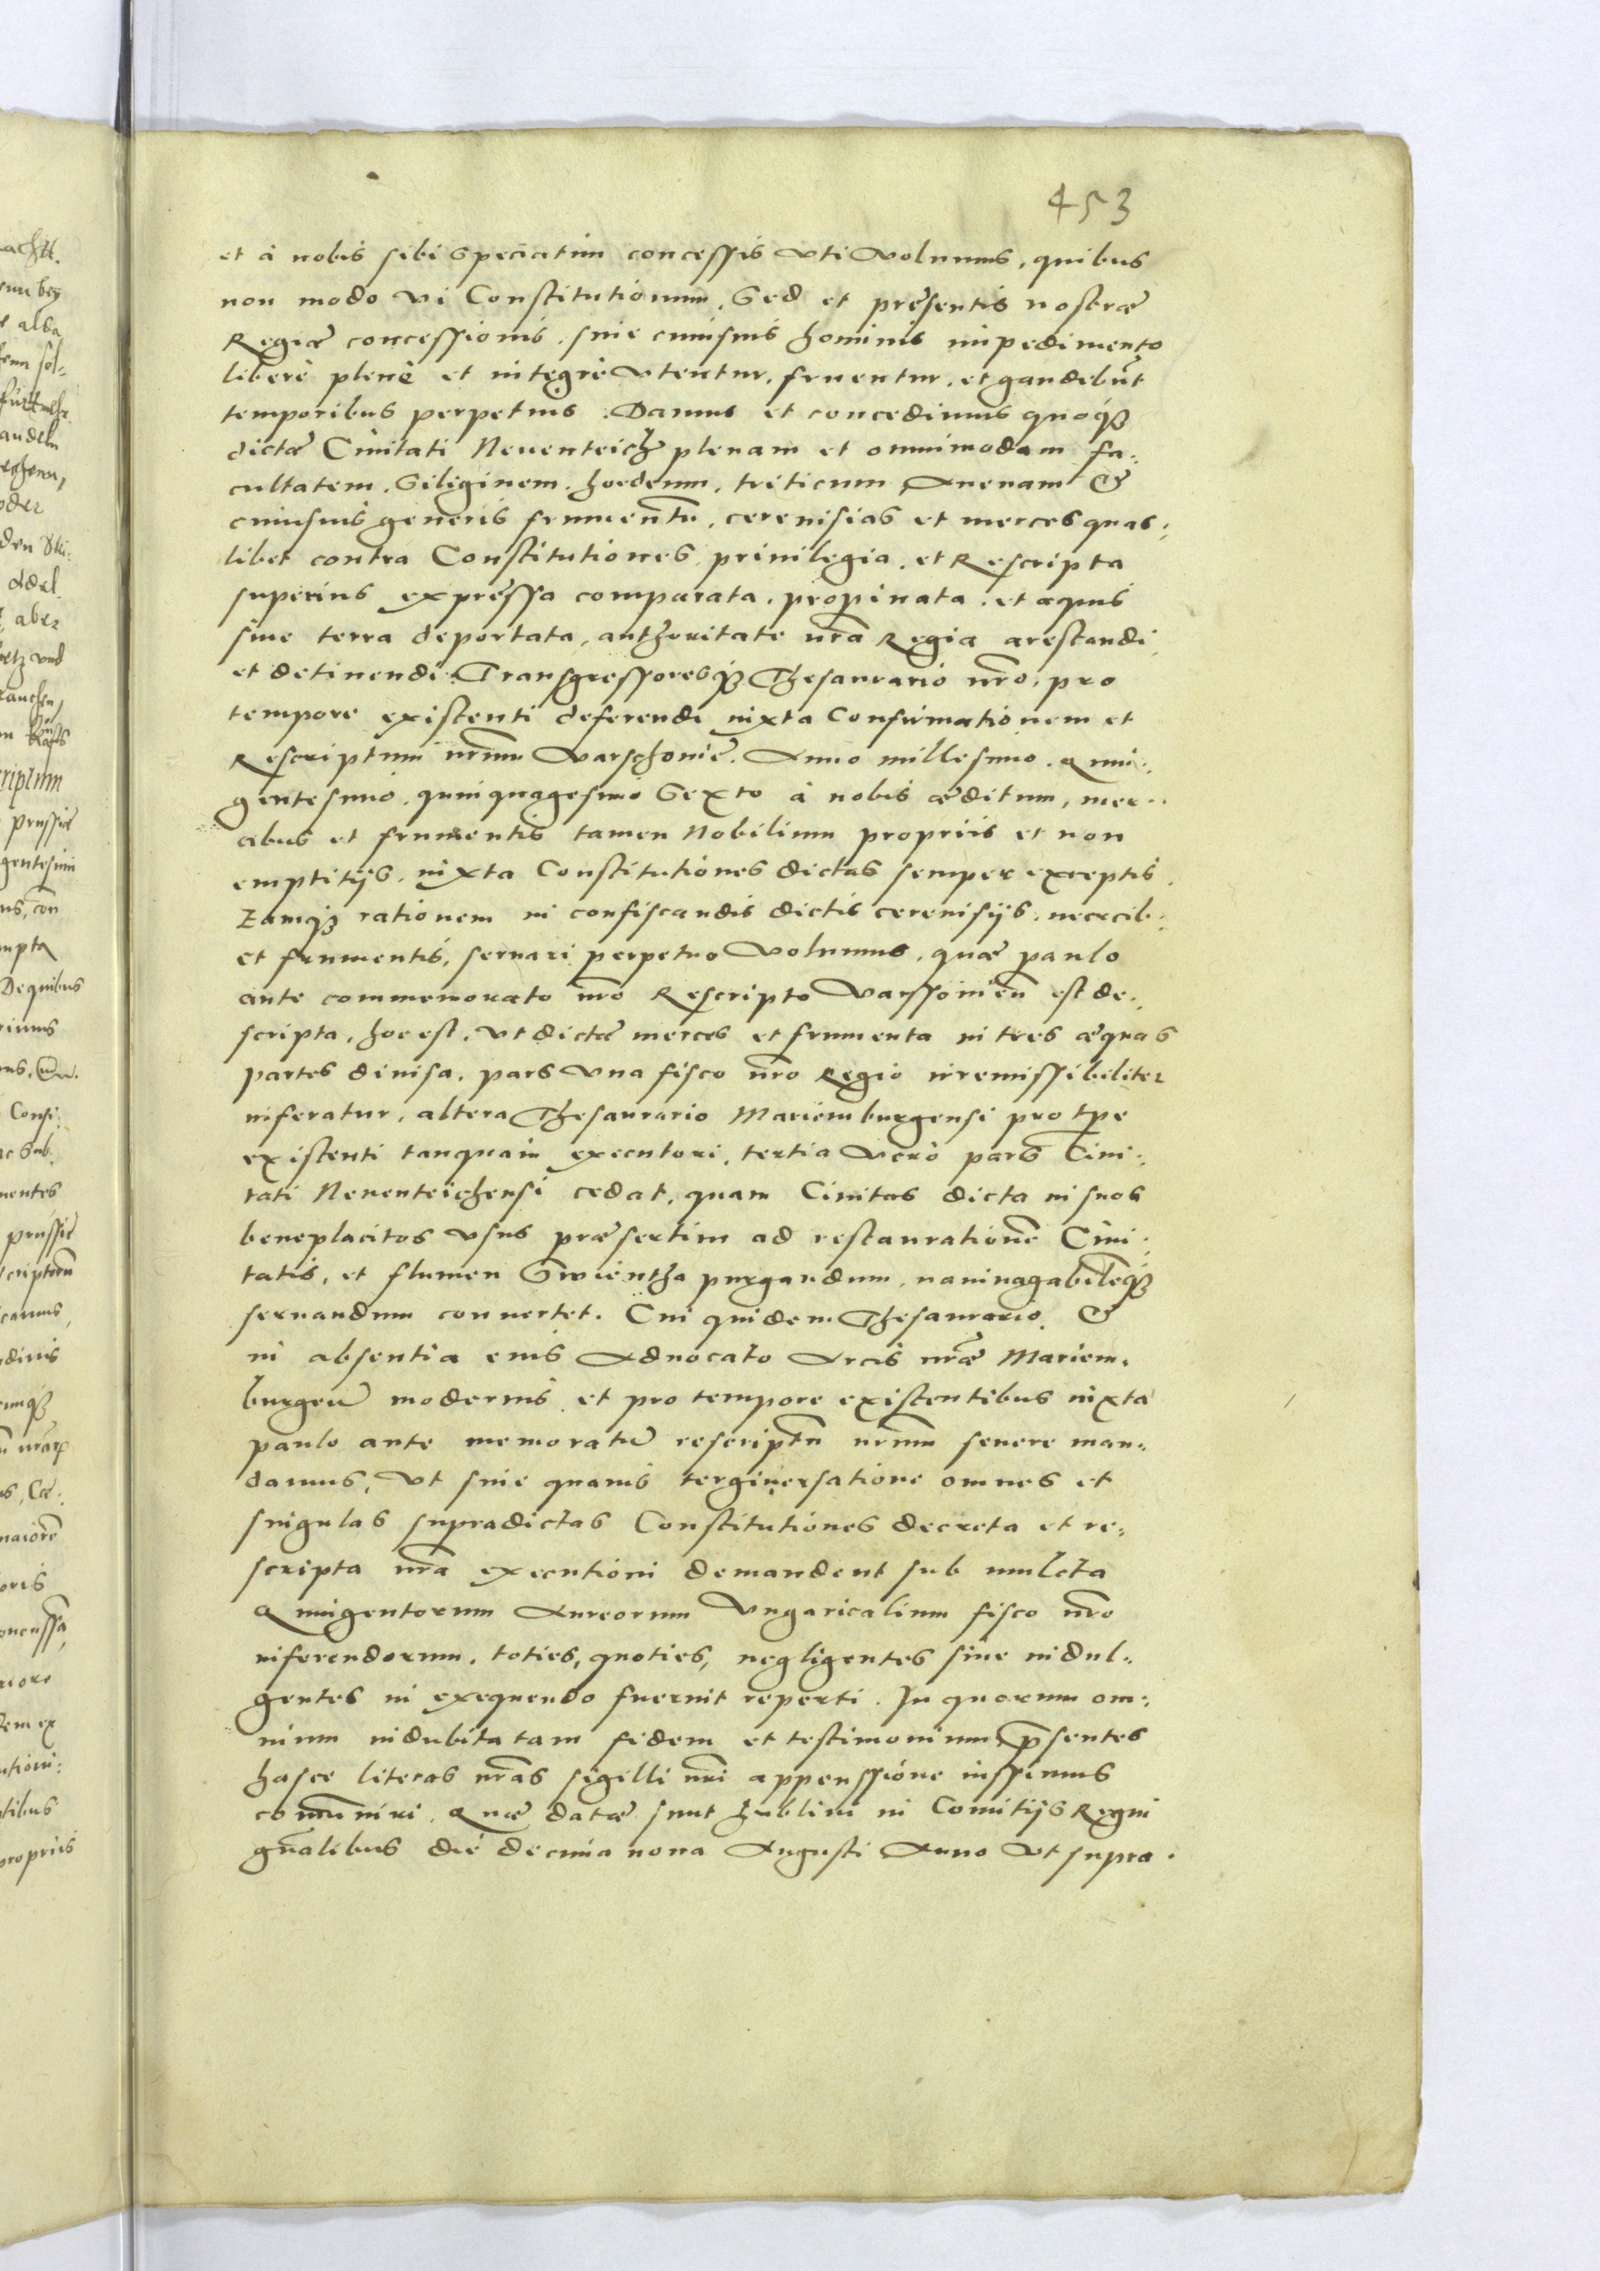 453
et à nobis sibi speciatim concessis vti volumus, quibus
non modo vi Constitutionum, sed et præsentis nostræ
Regiæ concessionis, sine cuiusuis hominis impedimento
liberè plenè et integrè vtentur, fruentur, et gaudebūt
temporibus perpetuis. Damus et concedimus quoqꝫ
dictæ Ciuitati Neuenteich plenam et omnimodam fa-
cultatem, Siliginem, hordeum, triticum Auenam &
cuiusuis generis frumentū, cereuisias et merces quas-
libet contra Constitutiones, priuilegia, et Rescripta
superius expressa comparata, propinata, et aquis
siue terra deportata, authoritate nr̄a Regia arestandi
et detinendi. Transgressoresqꝫ Thesaurario nr̄o, pro
tempore existenti deferendi, iuxta Confirmationem et
Rescriptum nr̄um Varschouiæ. Anno millesimo. Quin-
gentesimo, quinquagesimo Sexto à nobis æditum, mer-
cibus et frumentis tamen Nobilium propriis et non
emptitijs, iuxta Constitutiones dictas semper exceptis.
Eamqꝫ rationem in confiscandis dictis cereuisijs, mercib:
et frumentis, seruari perpetuo volumus, quæ paulo
ante commemorato nr̄o Rescripto Varssouien̄ est de-
scripta, hoc est, vt dictæ merces et frumenta in tres æquas
partes diuisa, pars vna fisco nr̄o Regio irremissibiliter
inferatur, altera Thesaurario Mariemburgensi pro tp̄e
existenti tanquam executori, tertia verò pars Ciui-
tati Neuenteichensi cedat, quam Ciuitas dicta in suos
beneplacitos vsus præsertim ad restaurationē Ciui-
tatis, et flumen Swientha purgandum, nauiuagabilēqꝫ
seruandum conuertet. Cui quidem Thesaurario, &
in absentia eius Aduocato Arcis nr̄æ Mariem-
burgen̄ modernis, et pro tempore existentibus iuxta
paulo ante memoratū rescriptū nr̄um seuere man-
damus, vt sine quauis tergiuersatione omnes et
singulas supradictas Constitutiones decreta et re-
scripta nr̄a executioni demandent sub mulcta
Quingentorum Aureorum Vngaricalium fisco nr̄o
inferendorum, toties, quoties, negligentes siue indul-
gentes in exequendo fuerint reperti. In quorum om-
nium indubitatam fidem et testimonium p̄sentes
hasce literas nr̄as sigilli nr̄i appenssione iussimus
com̄uniri. Quæ datæ sunt Lublini in Comitijs Regni
gn̄alibus die decima nona Augusti Anno vt supra.